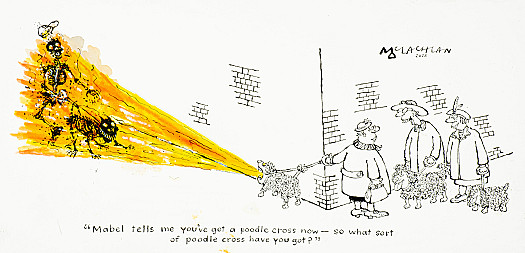 McLACHLAN
2025
"Mabel tells me you've got a poodle cross now — so what sort
of poodle cross have you got?"